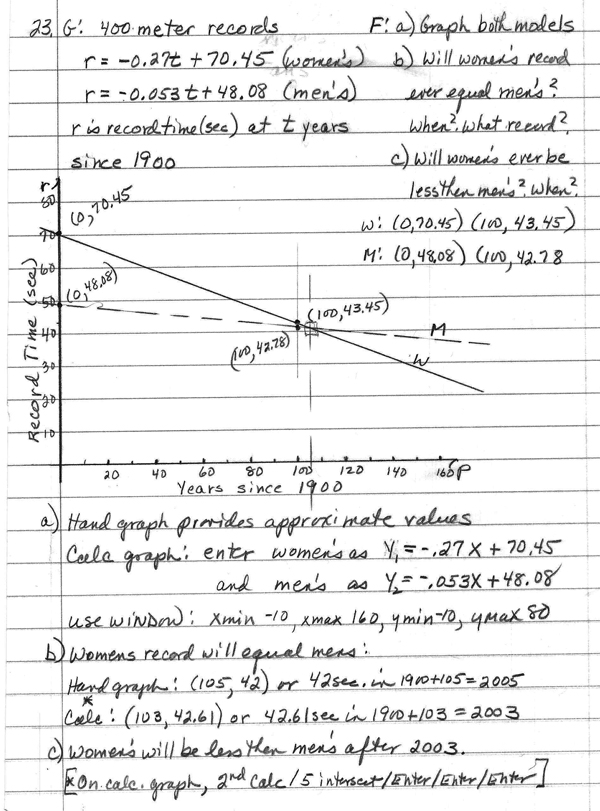 23. G: 400-meter records
r = -0.27t + 70.45 (women's)
r = -0.053t + 48.08 (men's)
r is record time (sec) at t years
since 1900
F: a) Graph both models
b) Will women's record
ever equal men's?
When? What record?
c) Will women's ever be
less then men's? When?
W: (0,70.45) (100, 43.45)
M: (0,48.08) (100, 42.78
r
80
70
60
50
40
30
20
10
Record Time (sec)
(0, 70.45
(0, 48.08)
(100, 43.45)
(100, 42.78)
M
W
20 40 60 80 100 120 140 160
Years since 1900
a) Hand graph provides approximate values
Calc graph: enter women's as Y₁ = -.27X + 70.45
and men's as Y₂ = -.053X + 48.08
use WINDOW: xmin -10, xmax 160, ymin -10, yMax 80
b) Womens record will equal mens:
Hand graph: (105, 42) or 42 sec. in 1900+105 = 2005
*
Calc: (103, 42.61) or 42.61 sec in 1900+103 = 2003
c) Women's will be less then men's after 2003.
[*On calc. graph, 2nd Calc/5 intersect/Enter/Enter/Enter]